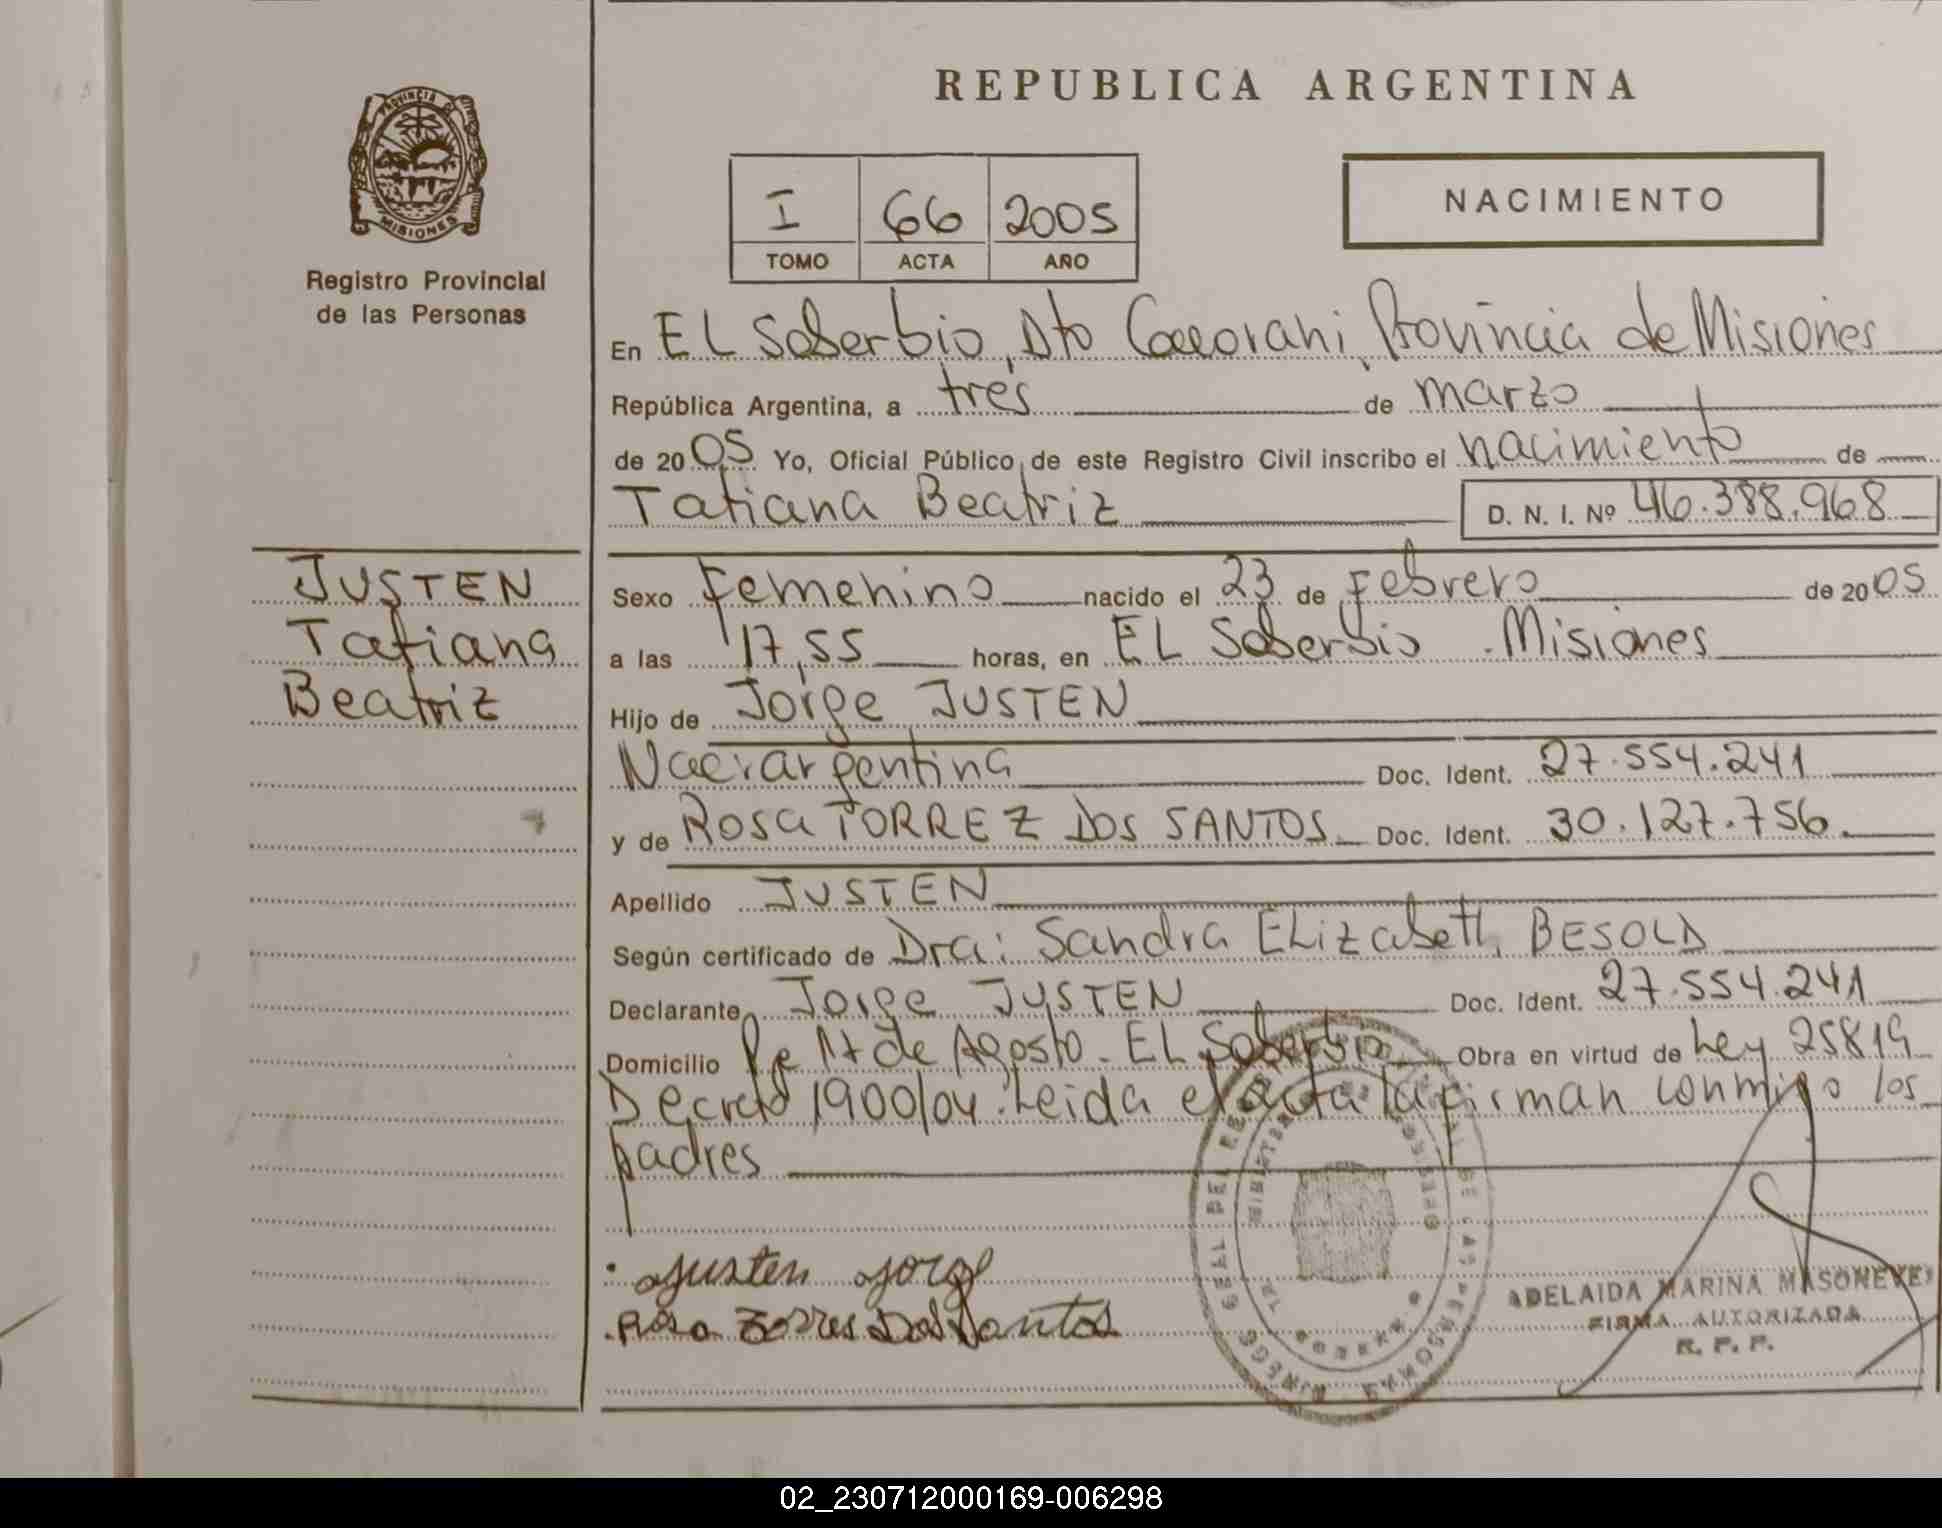 PROVINCIA DE
MISIONES
Registro Provincial
de las Personas
JUSTEN
Tatiana
Beatriz
REPUBLICA ARGENTINA
I 66 2005
TOMO ACTA AÑO
NACIMIENTO
En EL Soberbio, Dto Provincia de Misiones
República Argentina, a tres de marzo
de 2005 Yo, Oficial Público de este Registro Civil inscribo el nacimiento de
Tatiana Beatriz D. N. I. Nº 46.388.968
Sexo Femenino nacido el 23 de Febrero de 2005
a las 17,55 horas, en EL Soberbio - Misiones
Hijo de Jorge JUSTEN
Nac. argentina Doc. Ident. 27.554.241
y de ROSA TORREZ DOS SANTOS Doc. Ident. 30.127.756.
Apellido JUSTEN
Según certificado de Dra: Sandra Elizabeth BESOLD
Declarante Jorge JUSTEN Doc. Ident. 27.554.241
Domicilio 17 de Agosto - EL Soberbio Obra en virtud de Ley 25819
Decreto 1900/04. Leida el acta la firman conmigo los
padres
Justen Jorge
Rosa Torres Dos Santos
ADELAIDA MARINA
FIRMA AUTORIZADA
R. P. P.
02_230712000169-006298